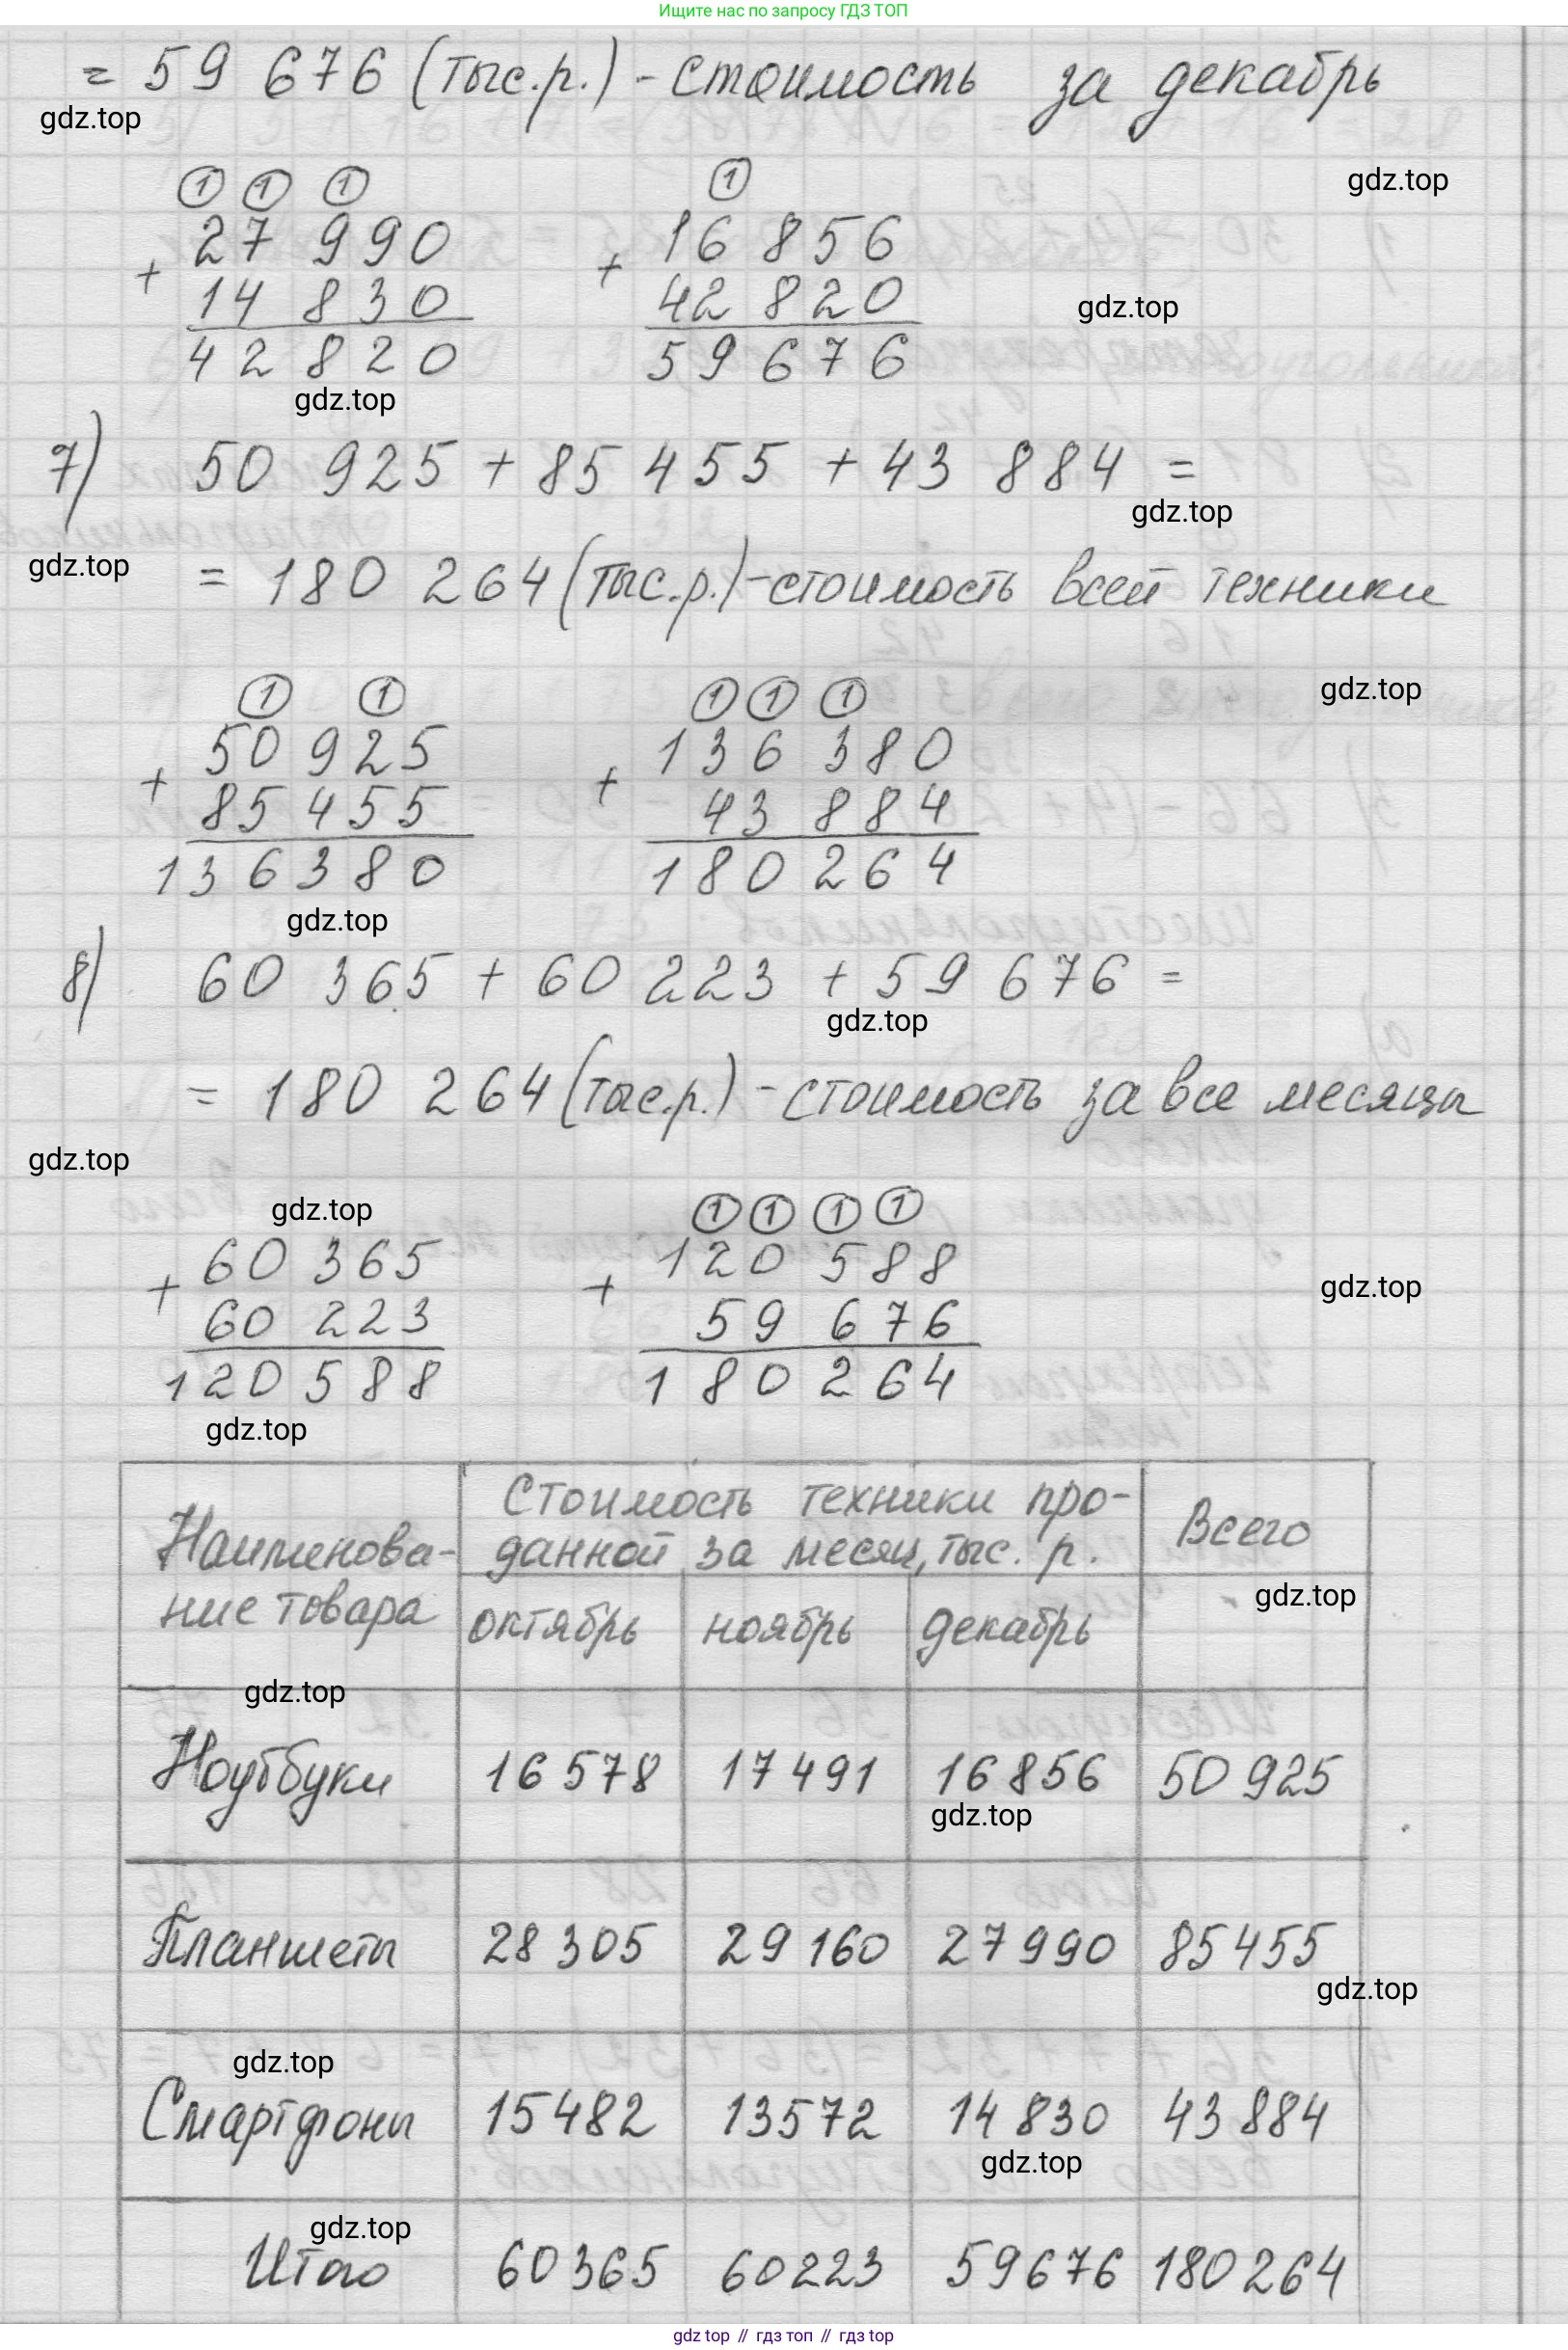 Ищите нас по запросу ГДЗ ТОП
= 59 676 (тыс.р.) - стоимость за декабрь
gdz.top
gdz.top
1 1 1
27 990
+
14 830
42 820
1
16 856
+
42 820
59 676
gdz.top
gdz.top
7) 50 925 + 85 455 + 43 884 =
gdz.top
gdz.top
= 180 264 (тыс.р.) - стоимость всей техники
gdz.top
1 1
50 925
+
85 455
136 380
1 1 1
136 380
+
43 884
180 264
gdz.top
8) 60 365 + 60 223 + 59 676 =
gdz.top
= 180 264 (тыс.р.) - стоимость за все месяцы
gdz.top
gdz.top
60 365
+
60 223
120 588
1 1 1 1
120 588
+
59 676
180 264
gdz.top
gdz.top
Наименова-
ние товара
Стоимость техники про-
данной за месяц, тыс. р.
Всего
gdz.top
октябрь ноябрь декабрь
gdz.top
Ноутбуки 16 578 17 491 16 856 50 925
gdz.top
Планшеты 28 305 29 160 27 990 85 455
gdz.top
gdz.top
Смартфоны 15 482 13 572 14 830 43 884
gdz.top
gdz.top
Итого 60 365 60 223 59 676 180 264
gdz top // гдз топ // гдз top